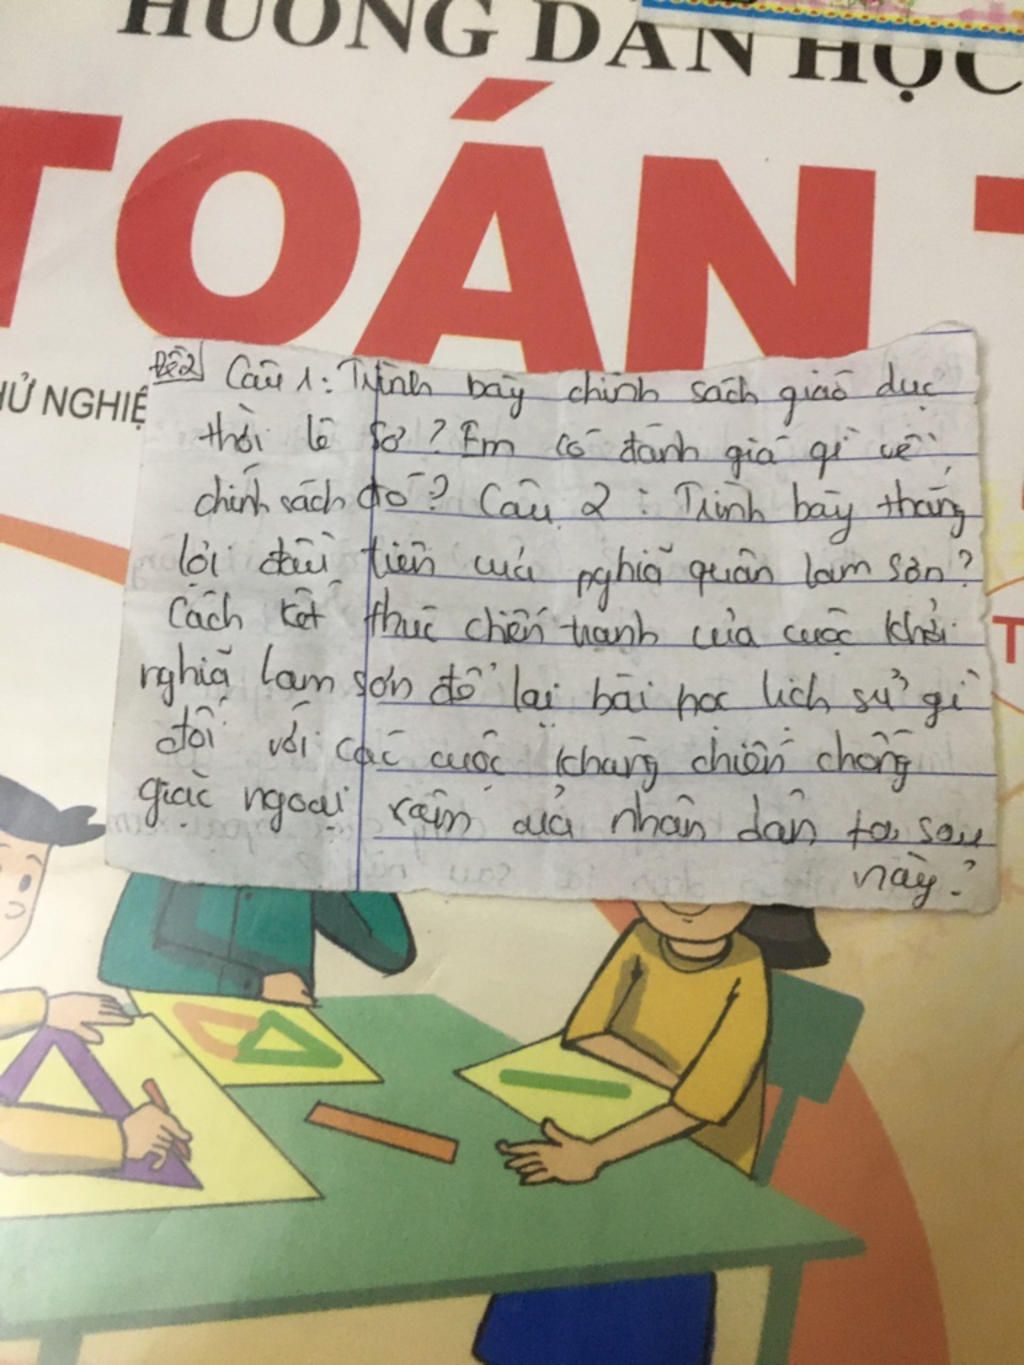 HƯỚNG DẪN HỌC
TOÁN
HỬ NGHIỆ
Đề 2 Câu 1: Trình bày chính sách giáo dục
thời lê sơ? Em có đánh giá gì về
chính sách đó? Câu 2: Trình bày thắng
lợi đầu tiên của nghĩa quân lam sơn?
Cách kết thúc chiến tranh của cuộc khởi
nghĩa lam sơn để lại bài học lịch sử gì
đối với các cuộc kháng chiến chống
giặc ngoại xâm của nhân dân ta sau
này?